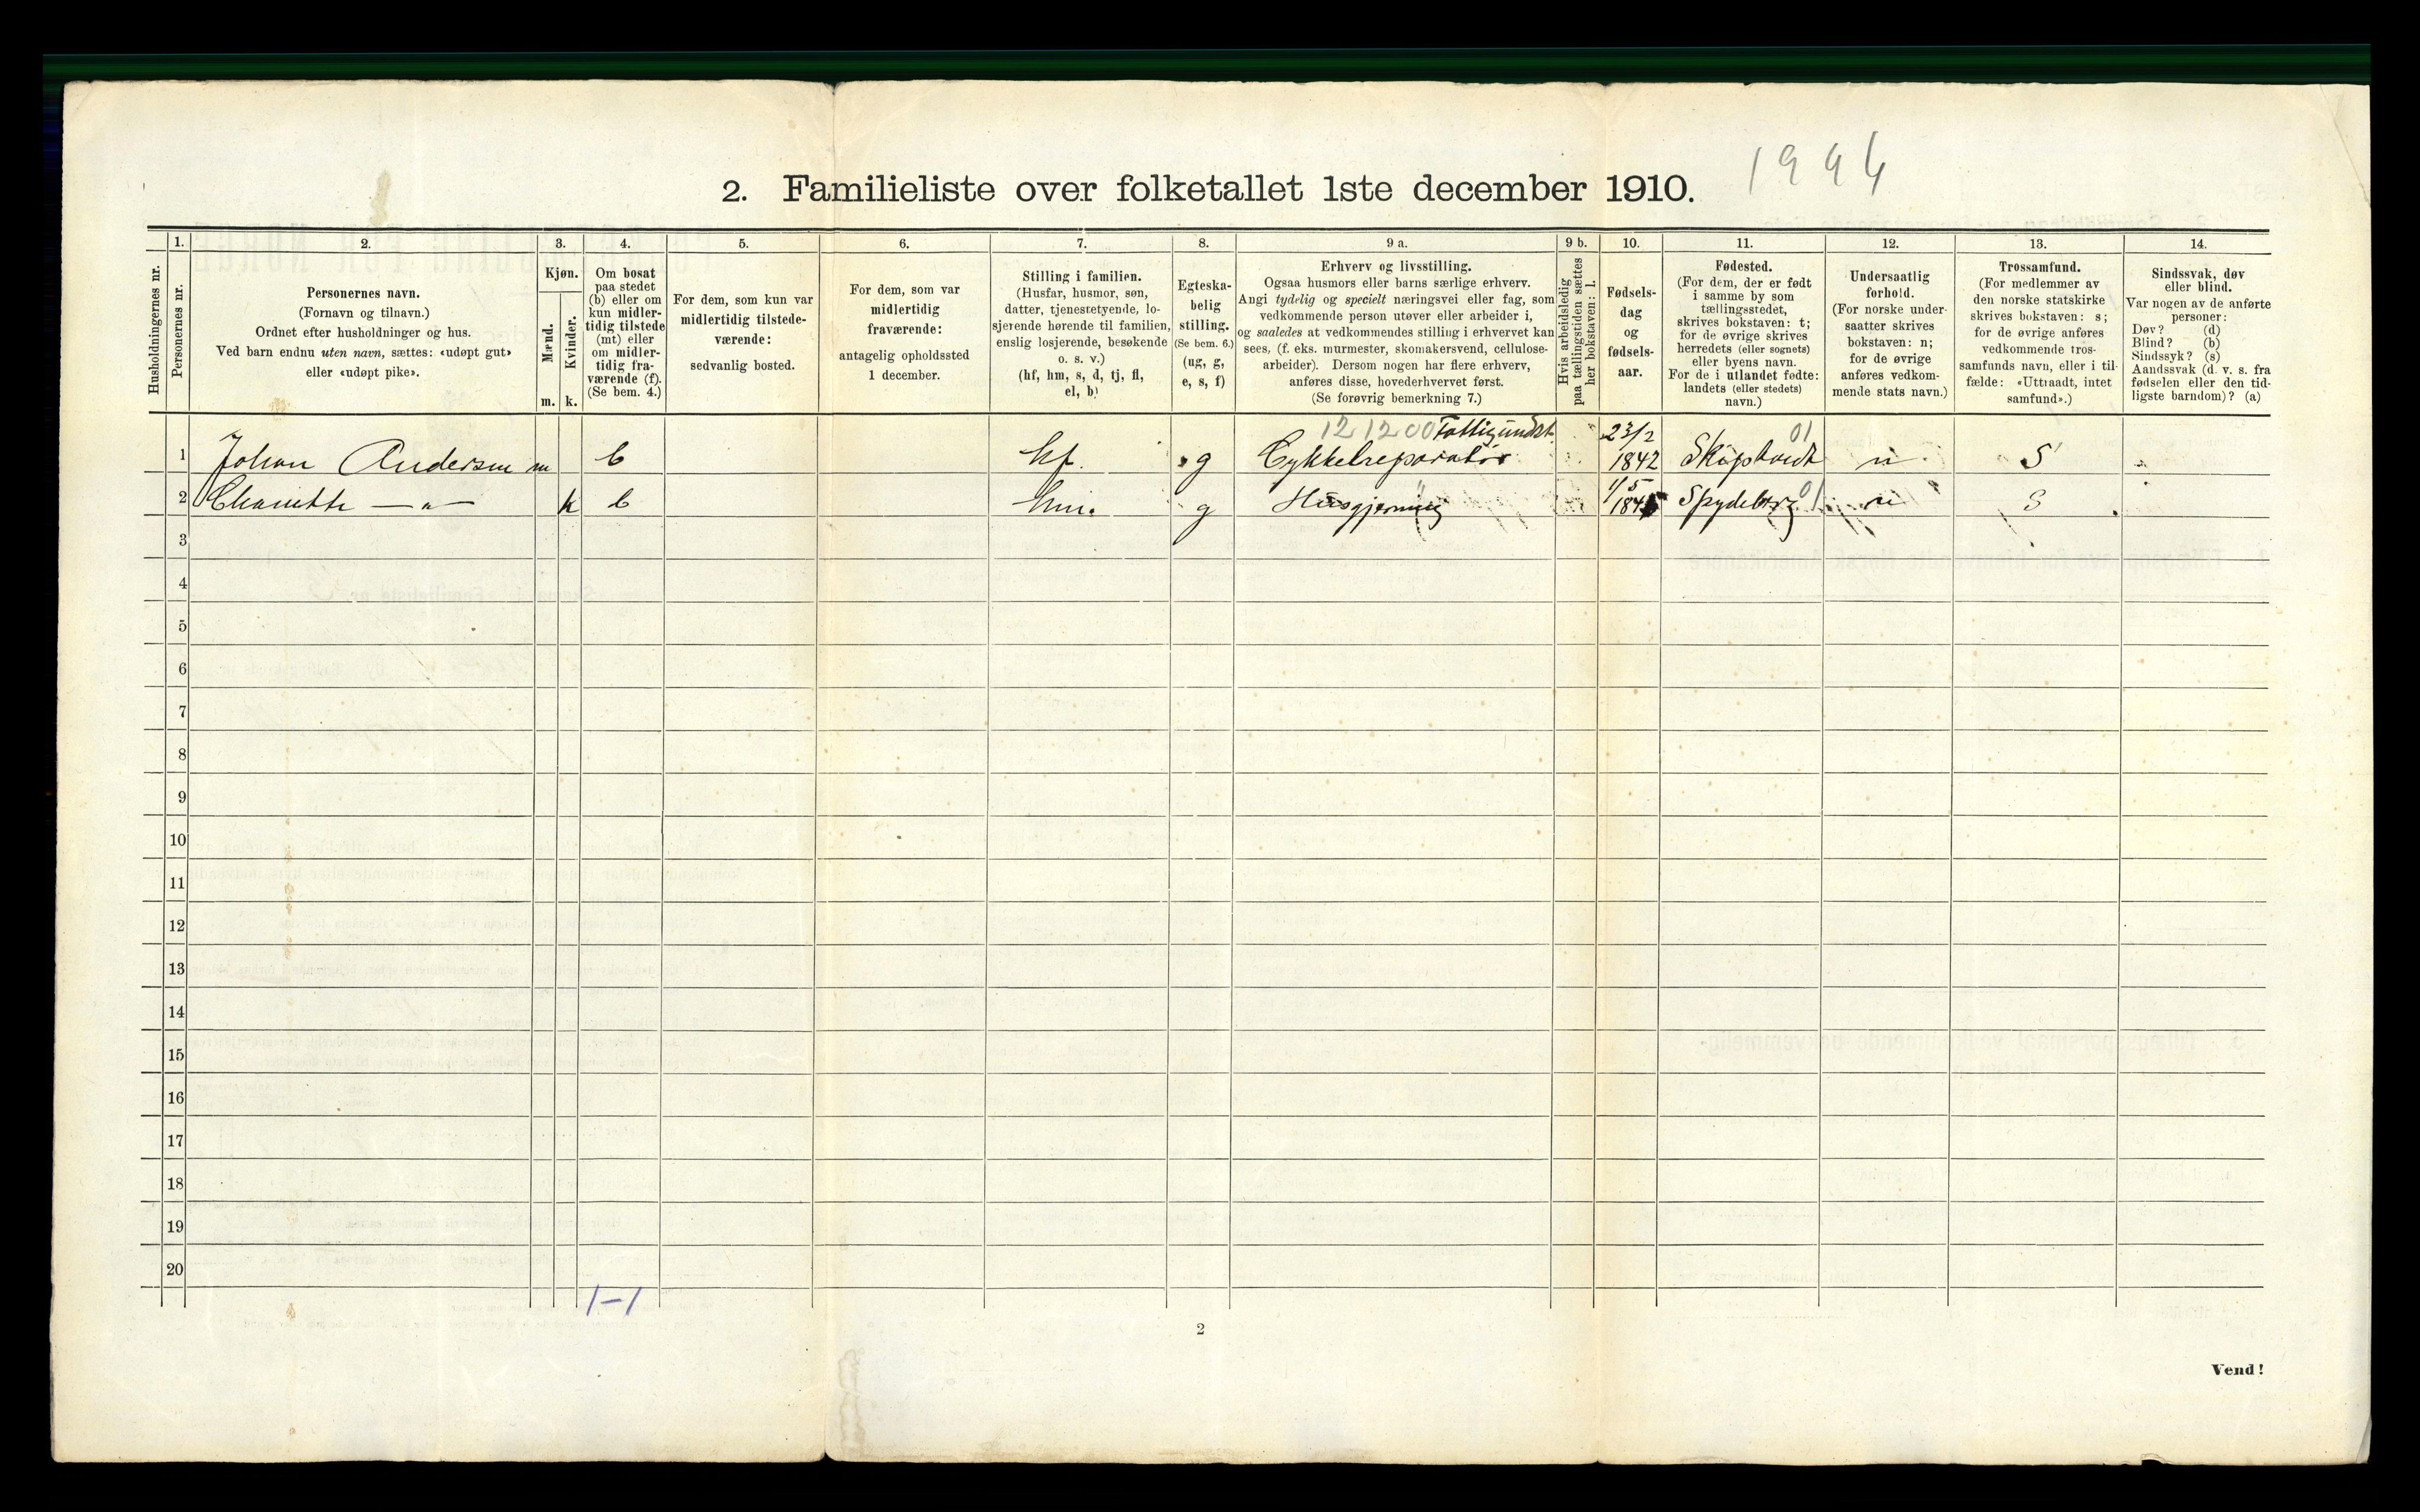 1994
2. Familieliste over folketallet 1ste december 1910.
Husholdningernes nr.
1.
Personernes nr.
2.
Personernes navn.
(Fornavn og tilnavn.)
Ordnet efter husholdninger og hus.
Ved barn endnu uten navn, sættes: «udøpt gut»
eller «udøpt pike».
3.
Kjøn.
Mænd.
Kvinder.
m. k.
4.
Om bosat
paa stedet
(b) eller om
kun midler-
tidig tilstede
(mt) eller
om midler-
tidig fra-
værende (f).
(Se bem. 4.)
5.
For dem, som kun var
midlertidig tilstede-
værende:
sedvanlig bosted.
6.
For dem, som var
midlertidig
fraværende:
antagelig opholdssted
1 december.
7.
Stilling i familien.
(Husfar, husmor, søn,
datter, tjenestetyende, lo-
sjerende hørende til familien,
enslig losjerende, besøkende
o. s. v.)
(hf, hm, s, d, tj, fl,
el, b)
8.
Egteska-
belig
stilling.
(Se bem. 6.)
(ug, g,
e, s, f)
9 a.
Erhverv og livsstilling.
Ogsaa husmors eller barns særlige erhverv.
Angi tydelig og specielt næringsvei eller fag, som
vedkommende person utøver eller arbeider i,
og saaledes at vedkommendes stilling i erhvervet kan
sees, (f. eks. murmester, skomakersvend, cellulose-
arbeider). Dersom nogen har flere erhverv,
anføres disse, hovederhvervet først.
(Se forøvrig bemerkning 7.)
9 b.
Hvis arbeidsledig
paa tællingstiden sættes
her bokstaven: l.
10.
Fødsels-
dag
og
fødsels-
aar.
11.
Fødested.
(For dem, der er født
i samme by som
tællingsstedet,
skrives bokstaven: t;
for de øvrige skrives
herredets (eller sognets)
eller byens navn.
For de i utlandet fødte:
landets (eller stedets)
navn.)
12.
Undersaatlig
forhold.
(For norske under-
saatter skrives
bokstaven: n;
for de øvrige
anføres vedkom-
mende stats navn.)
13.
Trossamfund.
(For medlemmer av
den norske statskirke
skrives bokstaven: s;
for de øvrige anføres
vedkommende tros-
samfunds navn, eller i til-
fælde: «Uttraadt, intet
samfund».)
14.
Sindssvak, døv
eller blind.
Var nogen av de anførte
personer:
Døv? (d)
Blind? (b)
Sindssyk? (s)
Aandssvak (d. v. s. fra
fødselen eller den tid-
ligste barndom)? (a)
12 12 00 Fattigundst. 23/2 01
1 Johan Andersen m b hf. g Cykkelreparatør 1842 Skiptvedt n S
1/5 01
2 k b hm. g Husgjerning 1845 Spydeberg n S
3
4
5
6
7
8
9
10
11
12
13
14
15
16
17
18
19
20
1-1
2
Vend!